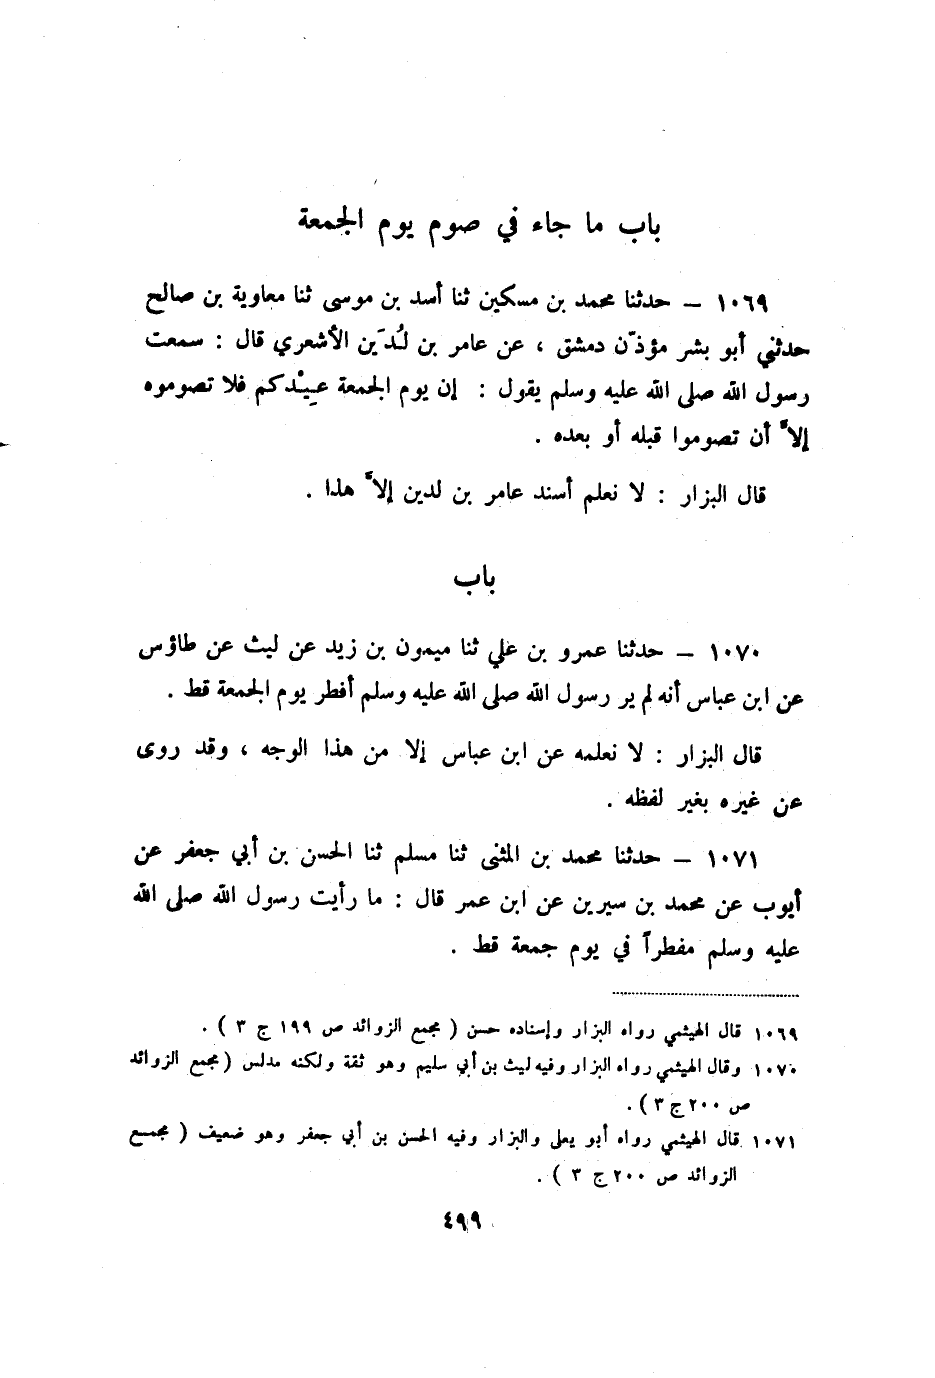 باب ما جاء في صوم يوم الجمعة
١٠٦٩ – حدثنا محمد بن مسكين ثنا أسد بن موسى ثنا معاوية بن صالح
حدثني أبو بشر مؤذّن دمشق ، عن عامر بن لُدَين الأشعري قال : سمعت
رسول الله صلى الله عليه وسلم يقول : إن يوم الجمعة عِيْدكم فلا تصوموه
إلاّ أن تصوموا قبله أو بعده .
قال البزار : لا نعلم أسند عامر بن لدين إلاّ هذا .
باب
١٠٧٠ – حدثنا عمرو بن علي ثنا ميمون بن زيد عن ليث عن طاؤس
عن ابن عباس أنه لم ير رسول الله صلى الله عليه وسلم أفطر يوم الجمعة قط .
قال البزار : لا نعلمه عن ابن عباس إلا من هذا الوجه ، وقد روى
عن غيره بغير لفظه .
١٠٧١ – حدثنا محمد بن المثنى ثنا مسلم ثنا الحسن بن أبي جعفر عن
أيوب عن محمد بن سيرين عن ابن عمر قال : ما رأيت رسول الله صلى الله
عليه وسلم مفطراً في يوم جمعة قط .
١٠٦٩ قال الهيثمي رواه البزار وإسناده حسن ( مجمع الزوائد ص ١٩٩ ج ٣ ) .
١٠٧٠ وقال الهيثمي رواه البزار وفيه ليث بن أبي سليم وهو ثقة ولكنه مدلس ( مجمع الزوائد
ص ٢٠٠ ج ٣ ) .
١٠٧١ قال الهيثمي رواه أبو يعلى والبزار وفيه الحسن بن أبي جعفر وهو ضعيف ( مجمع
الزوائد ص ٢٠٠ ج ٣ ) .
٤٩٩